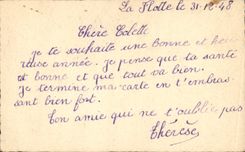 La Flotte le 31-12-48
Chère Colette
je te souhaite une bonne et heu
reuse année. je pense que ta santé
est bonne et que tout va bien.
Je termine ma carte en t'embras
sant bien fort.
Ton amie qui ne t'oublie pas
Thérèse